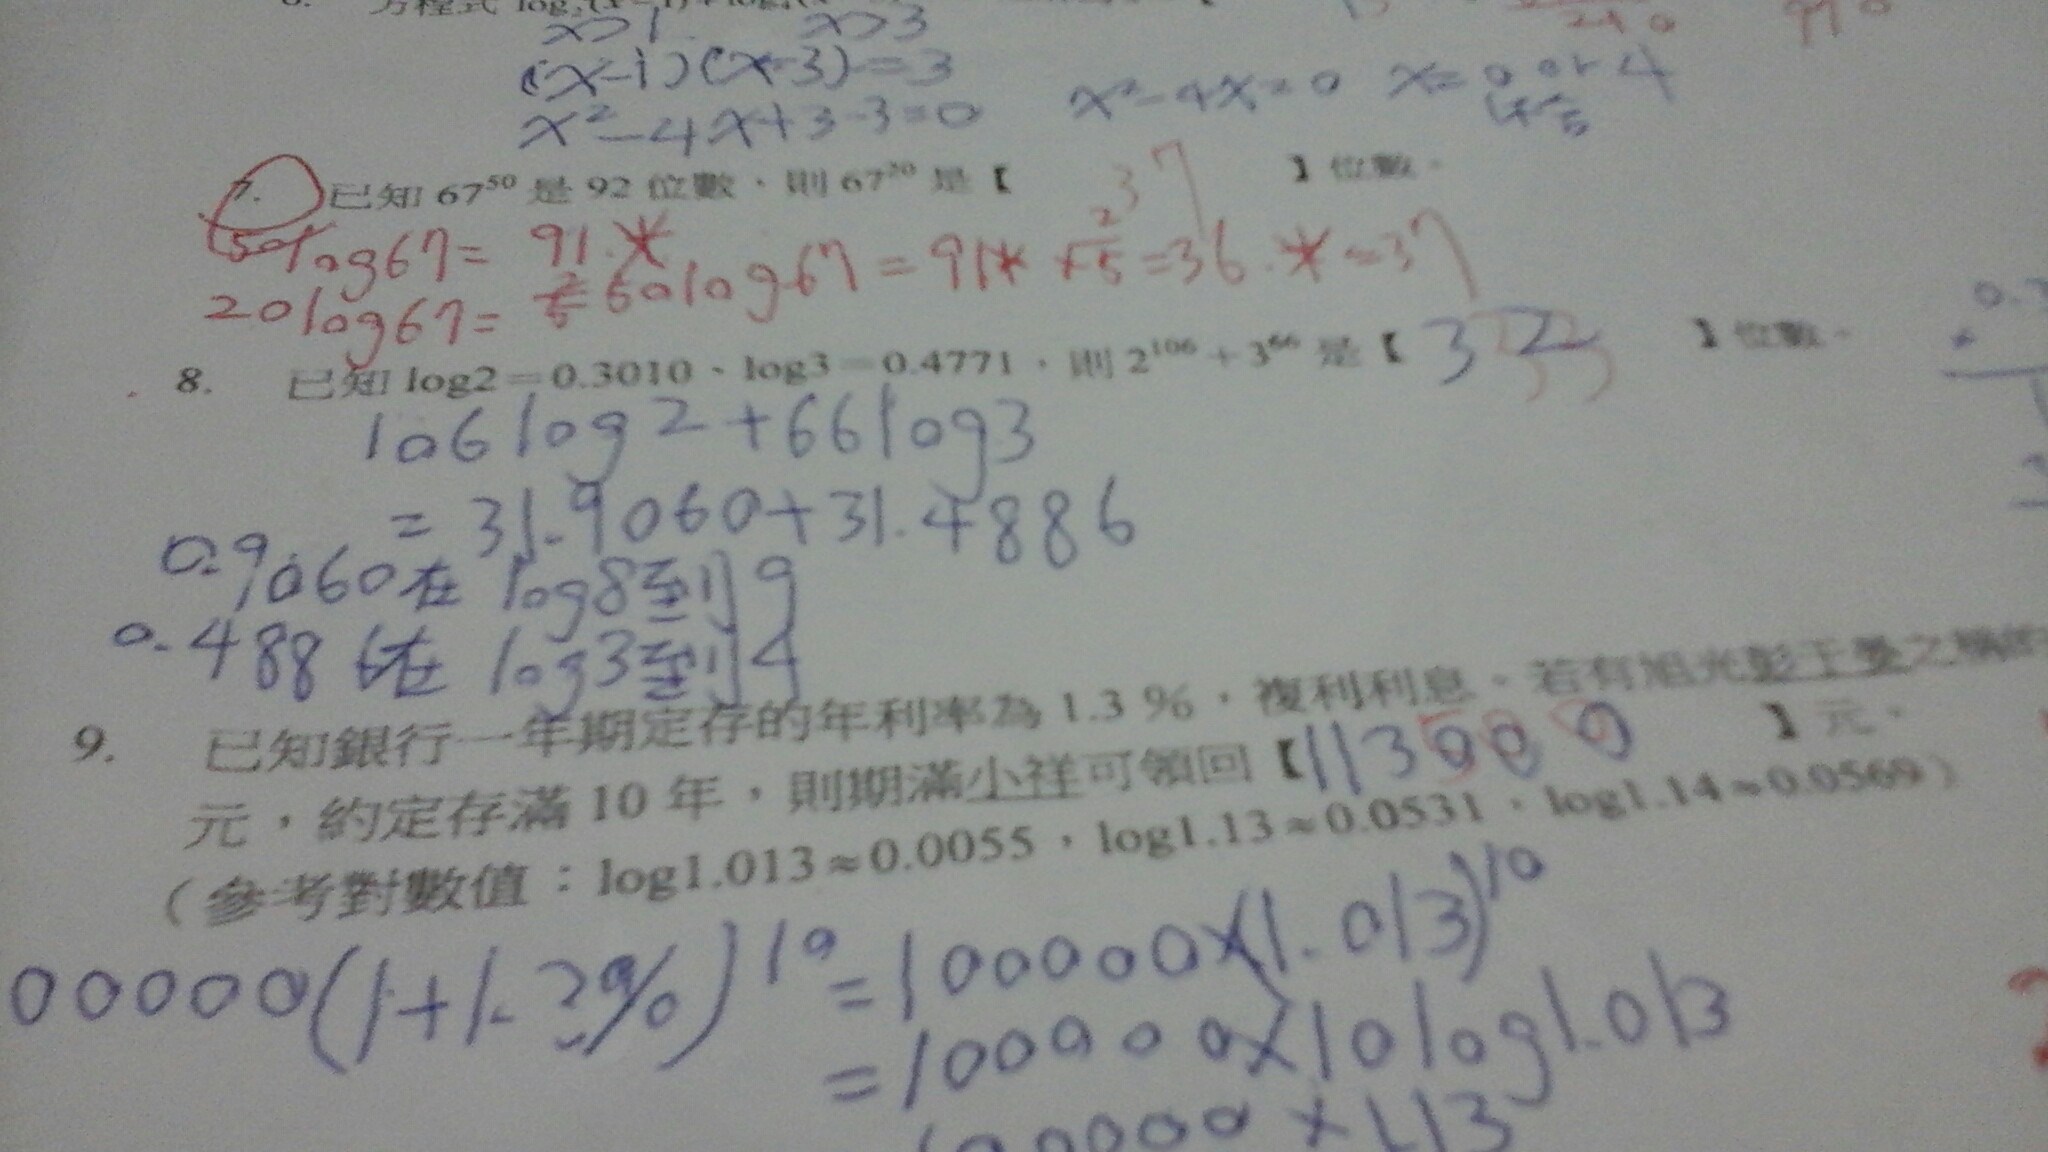 方程式 log
x>1 x>3
(x-1)(x-3)=3
x²-4x+3-3=0 x²-4x=0 x=0 or 4
7. 已知 67⁵⁰ 是 92 位數,則 67²⁰ 是【 37 】位數。
50log67= 91.*
20log67= 2/5 50log67=91* 2/5=36.*=37
8. 已知 log2=0.3010、log3=0.4771,則 2¹⁰⁶+3⁶⁶ 是【 32 】位數。
106log2+66log3
=31.9060+31.4886
0.9060在 log8到9
0.4886在 log3到4
9. 已知銀行一年期定存的年利率為 1.3 %,複利利息。若有
元,約定存滿 10 年,則期滿小祥可領回【113000 】元。
(參考對數值:log1.013≈0.0055,log1.13≈0.0531,log1.14≈0.0569)
00000(1+1.3%)¹⁰=100000×(1.013)¹⁰
=100000×10log1.013
100000×113